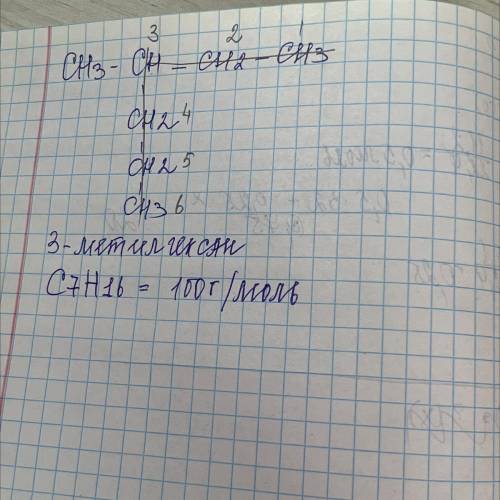 3 2 1
CH3 - CH - CH2 - CH3
CH2 4
CH2 5
CH3 6
3-метилгексан
C7H16 = 100г/моль